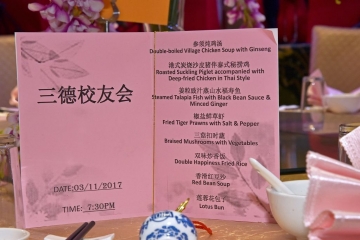 三德校友会
DATE:03/11/2017
TIME: 7:30PM
参须炖鸡汤
Double-boiled Village Chicken Soup with Ginseng
港式炭烧沙皮猪伴泰式秘捞鸡
Roasted Suckling Piglet accompanied with
Deep-fried Chicken in Thai Style
姜粒豉汁蒸山水福寿鱼
Steamed Talapia Fish with Black Bean Sauce &
Minced Ginger
椒盐鲜草虾
Fried Tiger Prawns with Salt & Pepper
三菇扣时蔬
Braised Mushrooms with Vegetables
双味炒香饭
Double Happiness Fried Rice
香滑红豆沙
Red Bean Soup
莲蓉花包子
Lotus Bun